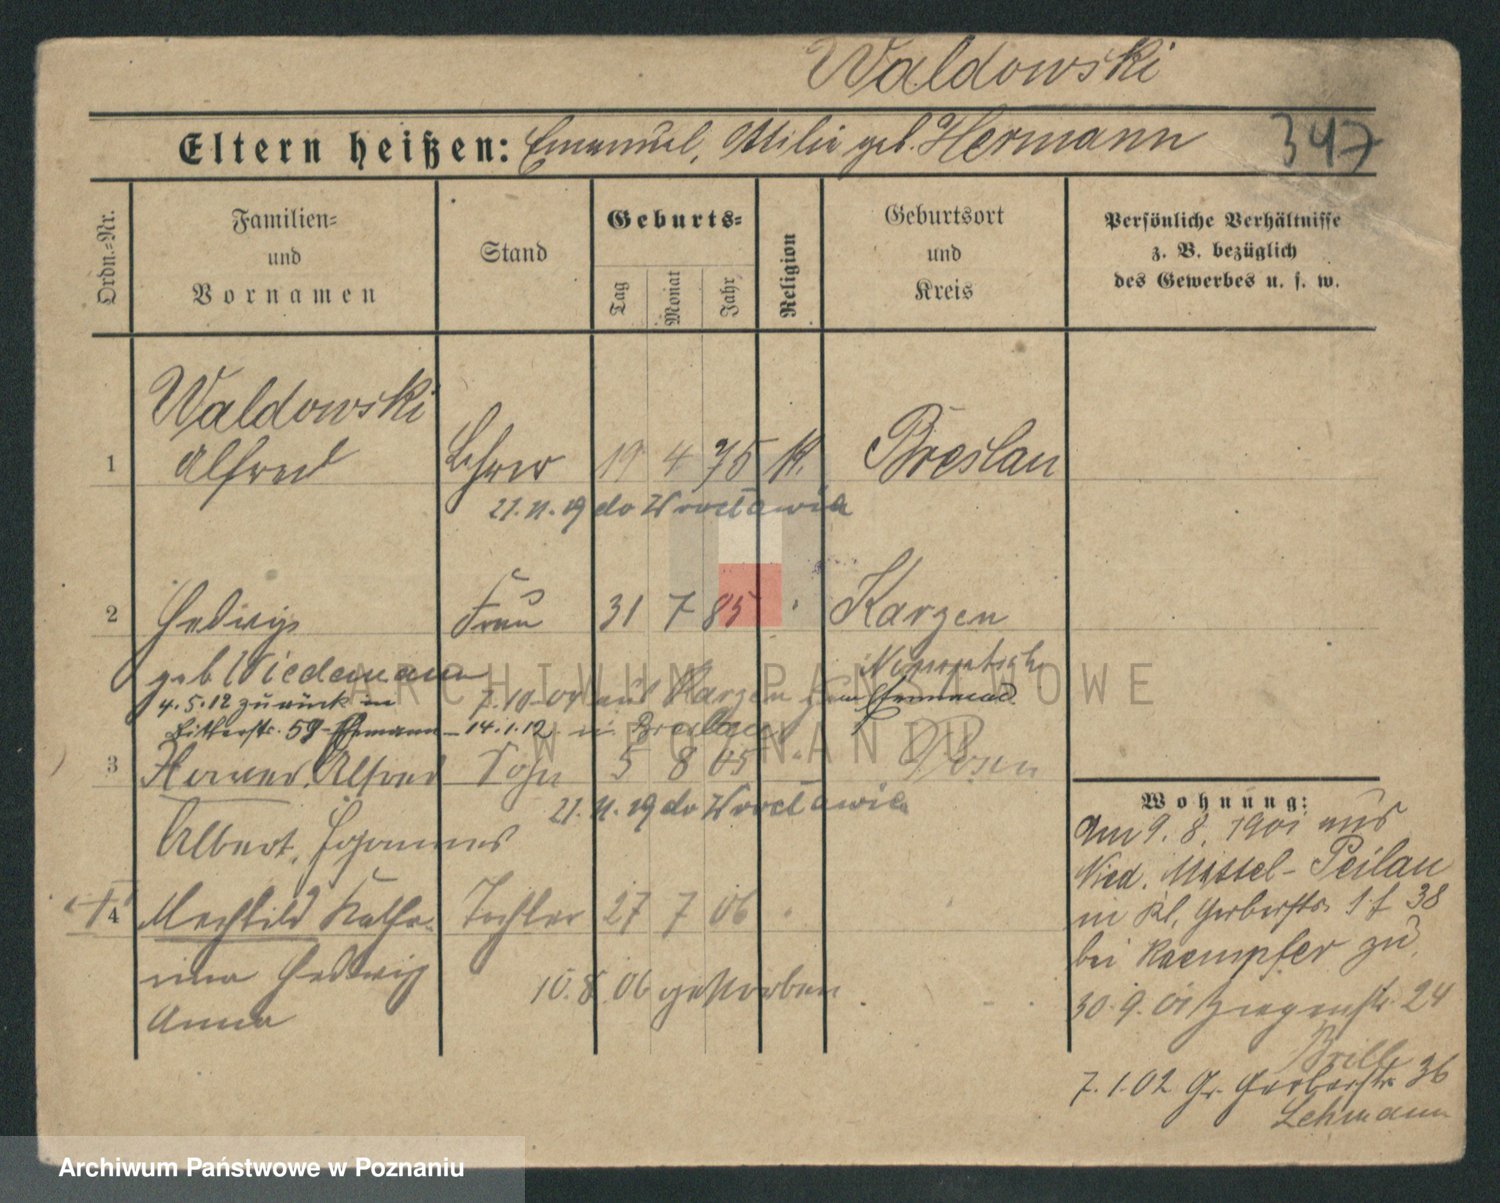 Waldowski
Eltern heißen: Emanuel, Ottilie geb. Hermann 347
Ordn.-Nr.
Familien- und Vornamen
Stand
Geburts-
Tag Monat Jahr
Religion
Geburtsort und Kreis
Persönliche Verhältnisse z. B. bezüglich des Gewerbes u. s. w.
Waldowski
1 Alfred Lehrer 19 4 75 K. Breslau
21.11.19 do Wrocławia
2 Hedwig Frau 31 7 85 " Karzen
geb Wiedemann 7.10.04 aus Karzen Nimptsch
4.5.12 zurück in
Ritterstr. 59 Ehemann – 14.1.12 in Breslau
3 Alfred Sohn 5 8 05 " Posen
21.11.19 do Wrocławia
Albert, Johannes
4 Mechtild Katha- Tochter 27 7 06 "
rina Hedwig 10.8.06 gestorben
Anna
Wohnung:
Am 9.8.1901 aus
Nied. Peilau
in Kl. Gerberstr. 38
bei Kaempfer zu
30.9.01 Ziegenstr. 24
Brill
7.1.02 Gr. Gerberstr. 36
Lehmann
ARCHIWUM PAŃSTWOWE
W POZNANIU
Archiwum Państwowe w Poznaniu